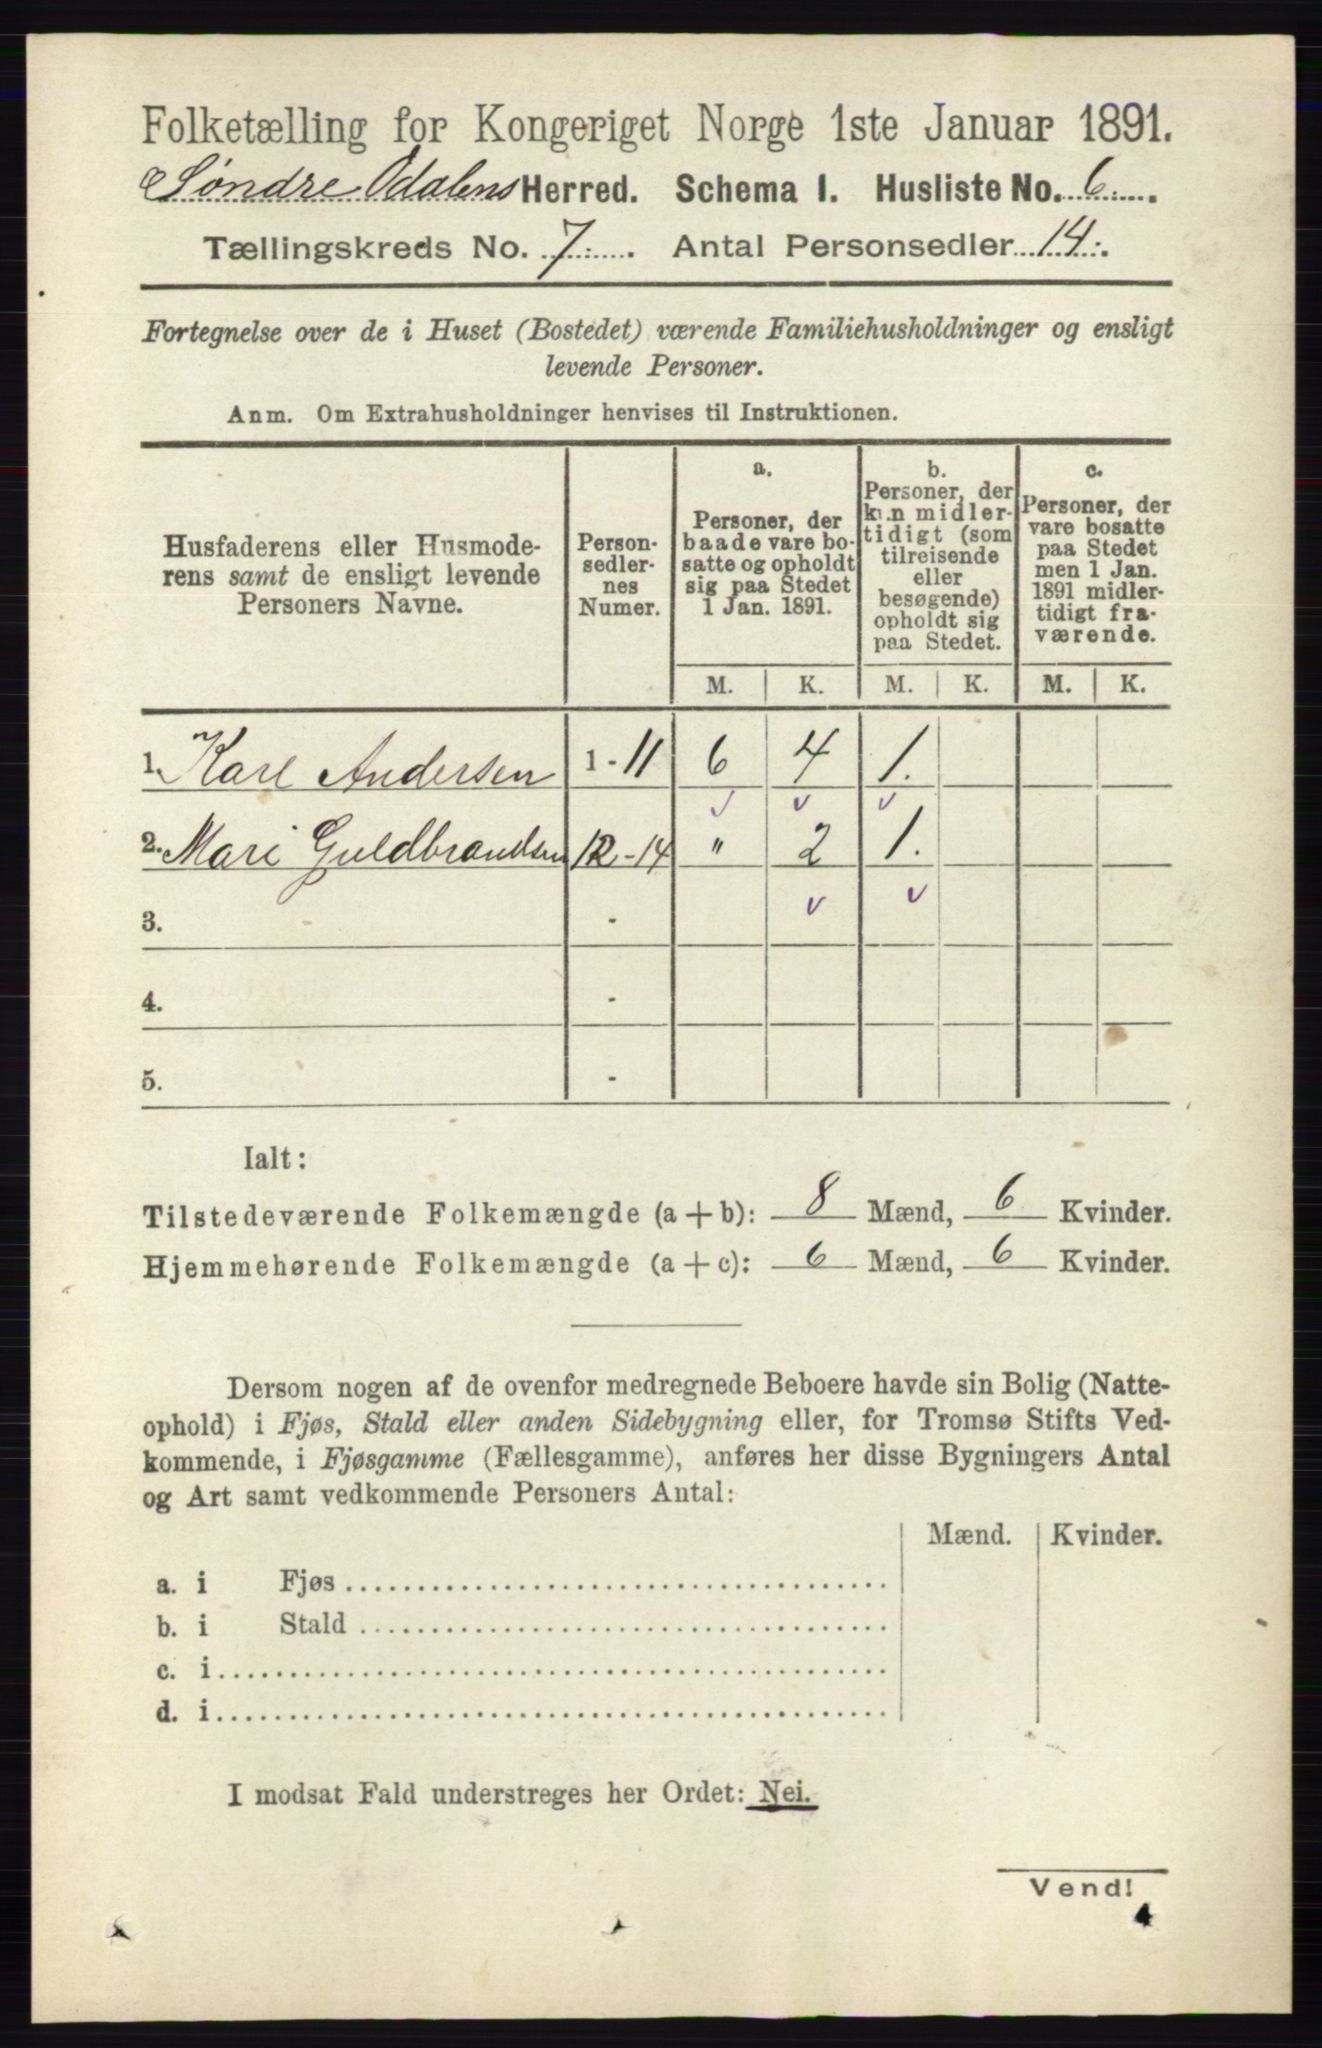 Folketælling for Kongeriget Norge 1ste Januar 1891.
Søndre Odalens Herred. Schema I. Husliste No. 6
Tællingskreds No. 7. Antal Personsedler 14.
Fortegnelse over de i Huset (Bostedet) værende Familiehusholdninger og ensligt
levende Personer.
Anm. Om Extrahusholdninger henvises til Instruktionen.
Husfaderens eller Husmode-
rens samt de ensligt levende
Personers Navne.
Person-
sedler-
nes
Numer.
a.
Personer, der
baade vare bo-
satte og opholdt
sig paa Stedet
1 Jan. 1891.
b.
Personer, der
kun midler-
tidigt (som
tilreisende
eller
besøgende)
opholdt sig
paa Stedet.
c.
Personer, der
vare bosatte
paa Stedet
men 1 Jan.
1891 midler-
tidigt fra-
værende.
M. K. M. K. M. K.
1. Karl Andersen 1 - 11 6 4 1.
2. Mari Guldbrandsen 12 - 14 " 2 1.
3. -
4. -
5. -
Ialt:
Tilstedeværende Folkemængde (a + b): 8 Mænd, 6 Kvinder.
Hjemmehørende Folkemængde (a + c): 6 Mænd, 6 Kvinder.
Dersom nogen af de ovenfor medregnede Beboere havde sin Bolig (Natte-
ophold) i Fjøs, Stald eller anden Sidebygning eller, for Tromsø Stifts Ved-
kommende, i Fjøsgamme (Fællesgamme), anføres her disse Bygningers Antal
og Art samt vedkommende Personers Antal:
Mænd. Kvinder.
a. i Fjøs
b. i Stald
c. i
d. i
I modsat Fald understreges her Ordet: Nei.
Vend!